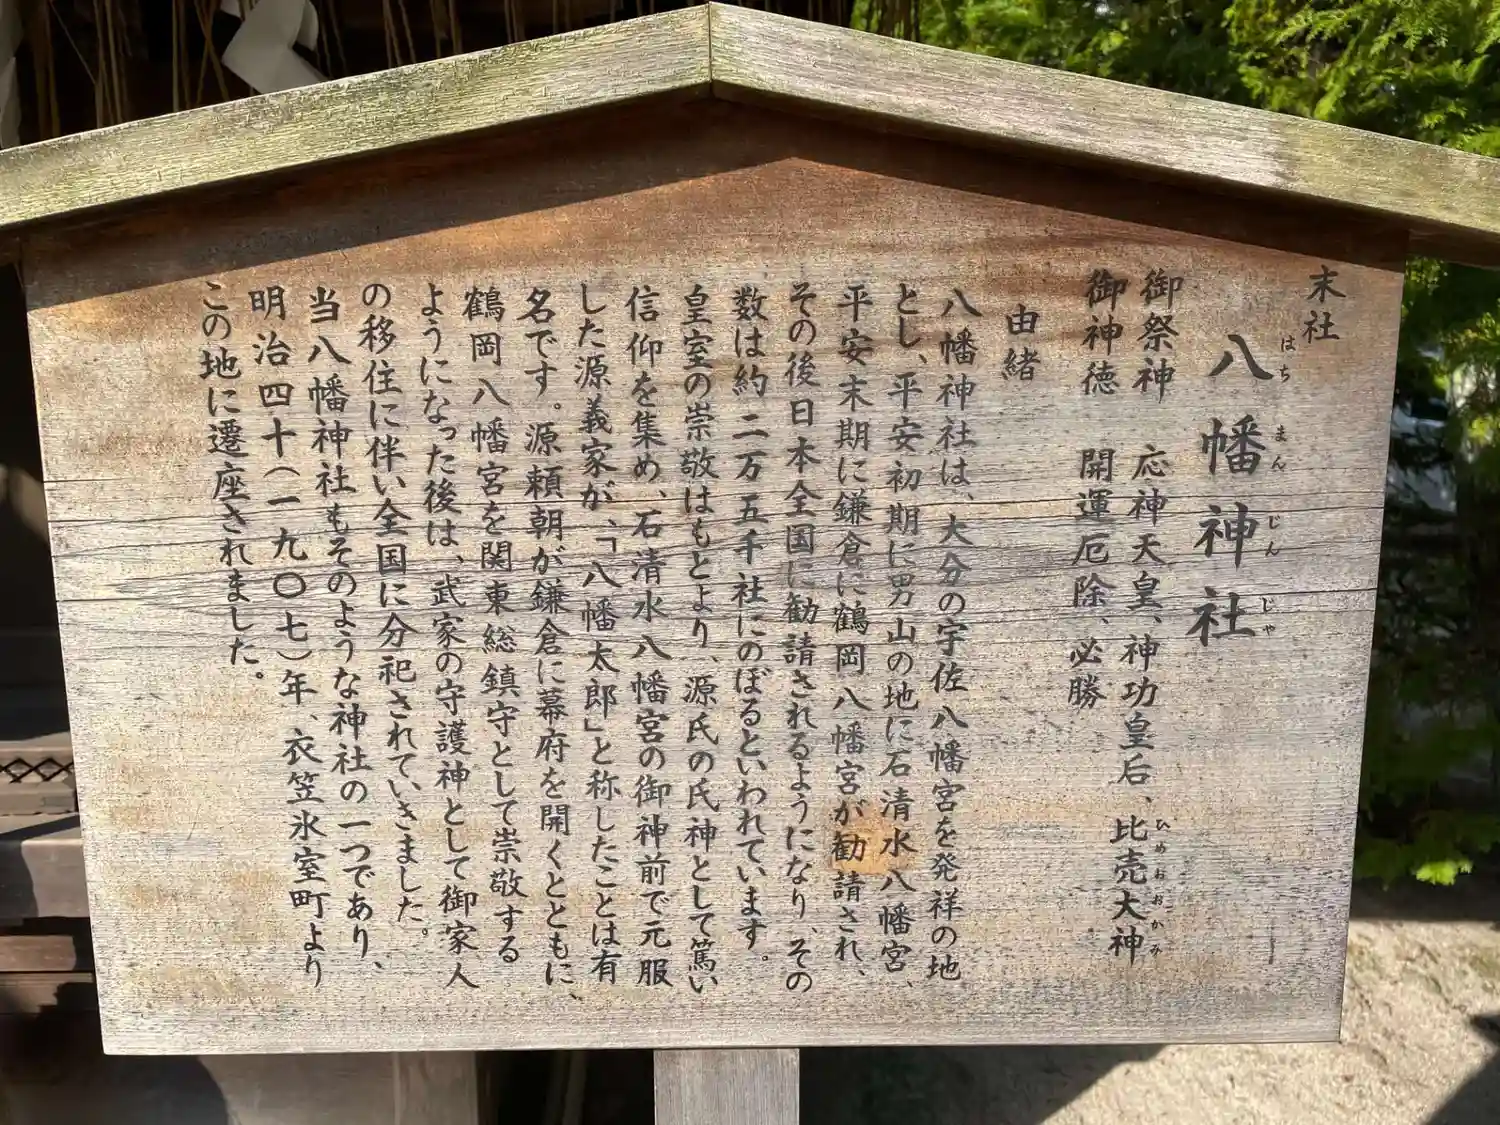 末社
八幡神社
はち まん じん じゃ
御祭神 応神天皇、神功皇后、比売大神
ひめおおかみ
御神徳 開運厄除、必勝
由緒
八幡神社は、大分の宇佐八幡宮を発祥の地
とし、平安初期に男山の地に石清水八幡宮、
平安末期に鎌倉に鶴岡八幡宮が勧請され、
その後日本全国に勧請されるようになり、その
数は約二万五千社にのぼるといわれています。
皇室の崇敬はもとより、源氏の氏神として篤い
信仰を集め、石清水八幡宮の御神前で元服
した源義家が、「八幡太郎」と称したことは有
名です。源頼朝が鎌倉に幕府を開くとともに、
鶴岡八幡宮を関東総鎮守として崇敬する
ようになった後は、武家の守護神として御家人
の移住に伴い全国に分祀されていきました。
当八幡神社もそのような神社の一つであり、
明治四十(一九〇七)年、衣笠氷室町より
この地に遷座されました。